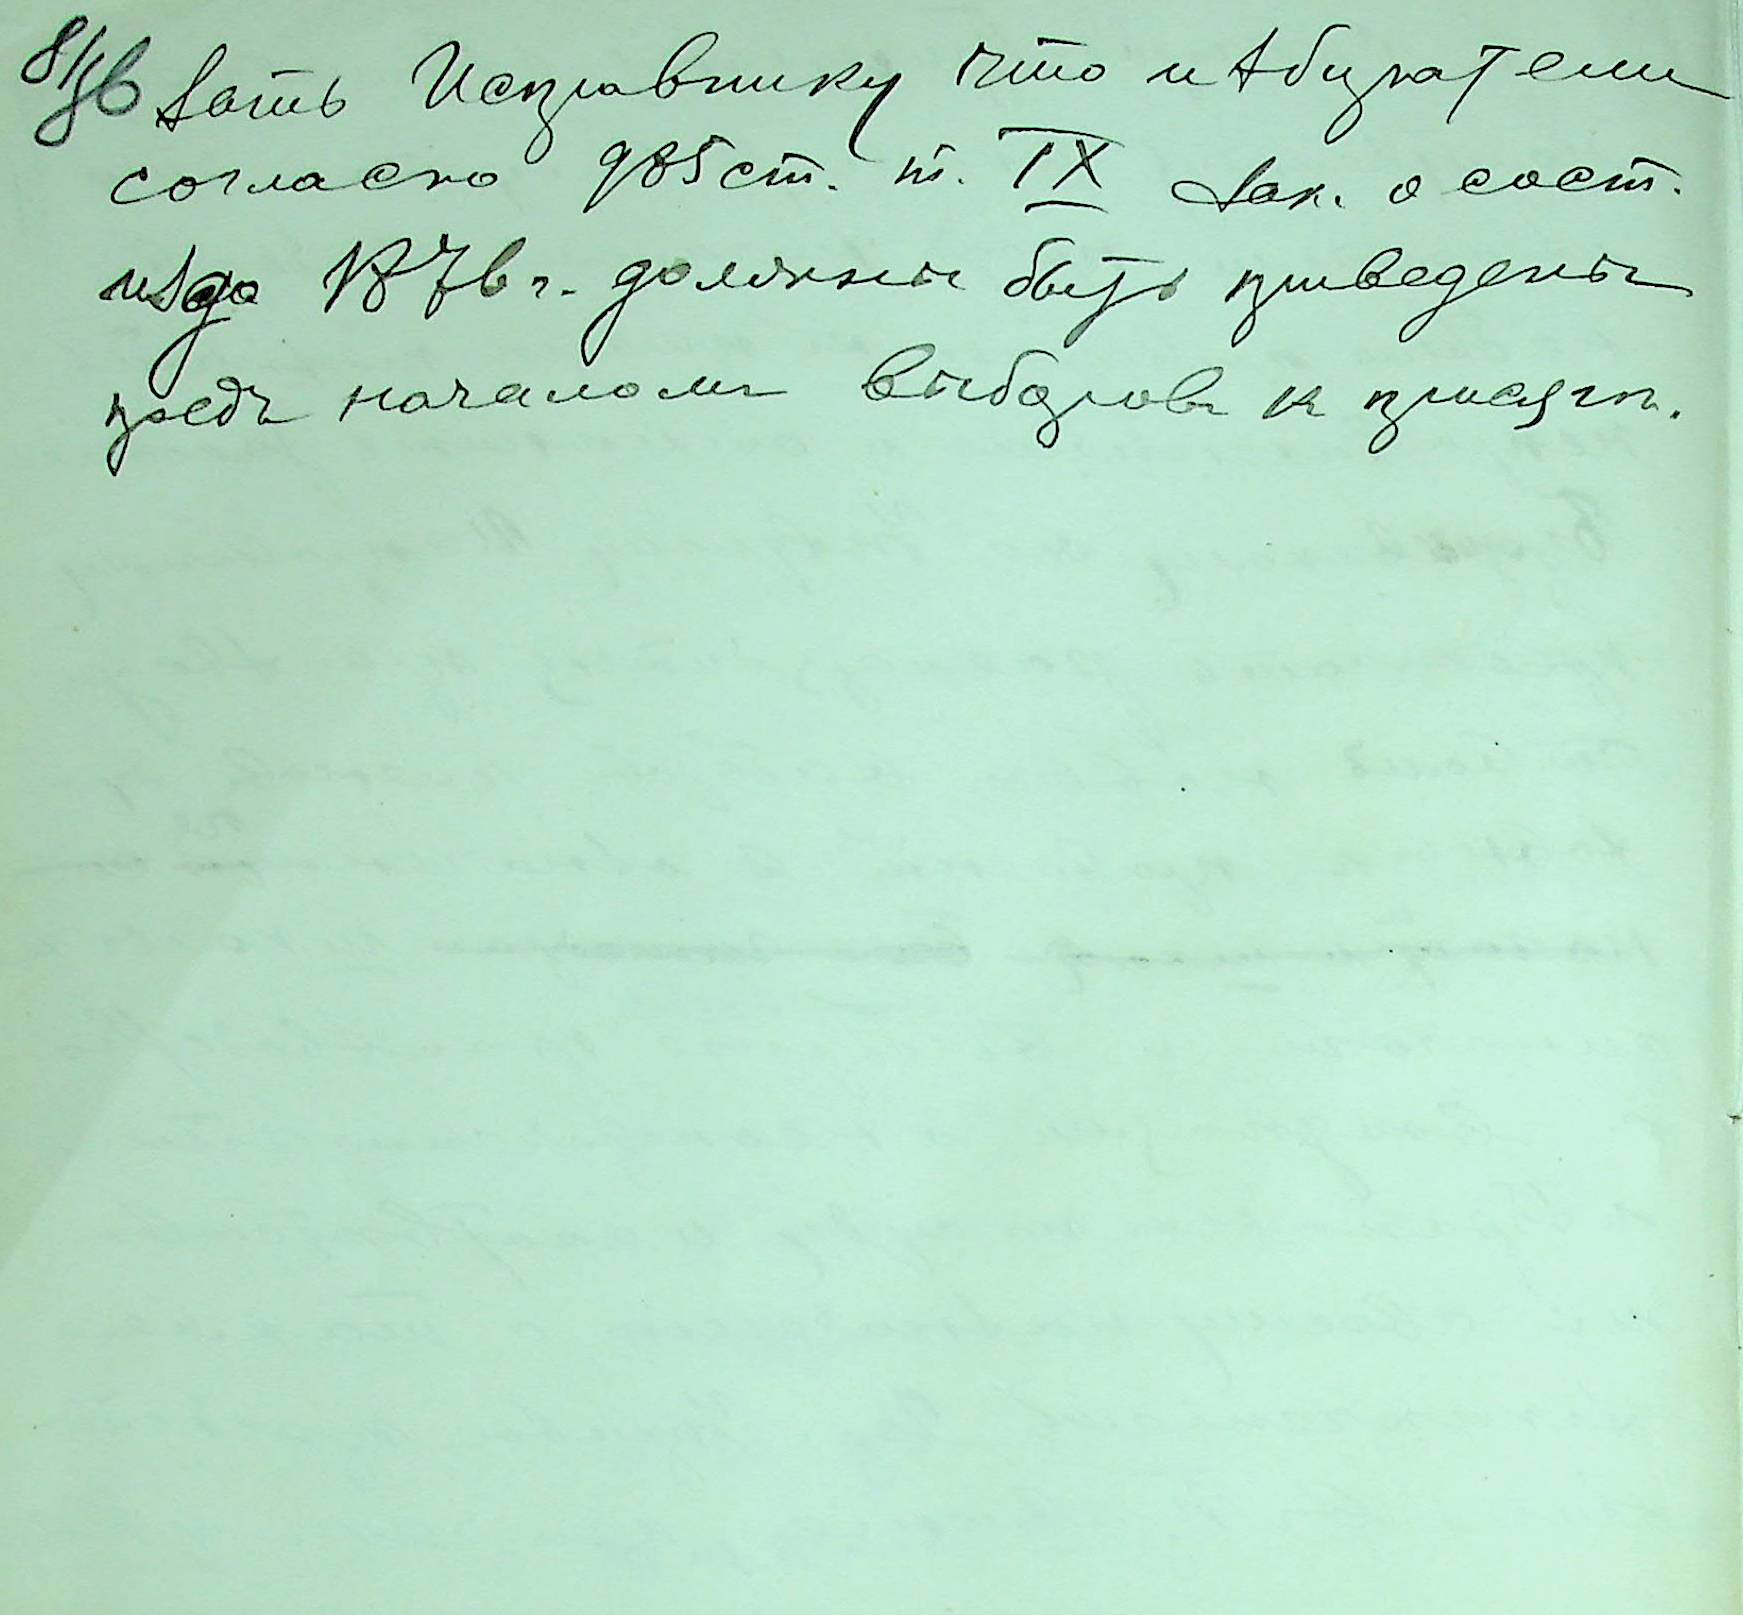 зать Исправнику что избиратели
согласно 985 ст. т. IX Зак. о сост.
изд. 1876 г. должны быть приведены
предъ началомъ выборовъ к присягѣ.